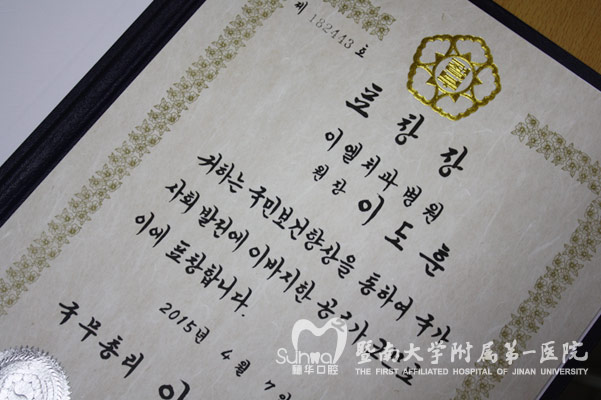 제 182443 호
표 창 장
이엘치과병원
원장 이 도 훈
귀하는 국민보건향상을 통하여 국가
사회 발전에 이바지한 공로가
이에 표창합니다.
2015년 4월 7일
국무총리 이
Suhwa
穗华口腔
暨南大学附属第一医院
THE FIRST AFFILIATED HOSPITAL OF JINAN UNIVERSITY